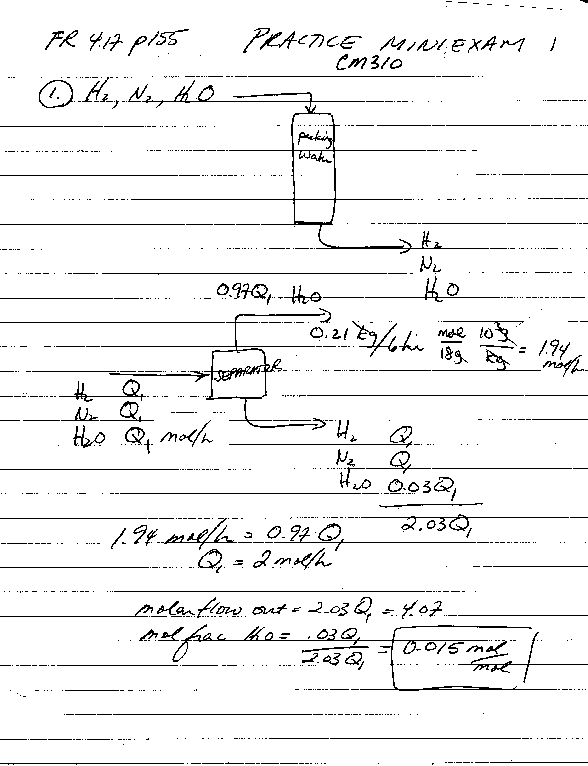 FR 4.17 p155 PRACTICE MINIEXAM 1
CM310
1. H2, N2, H2O
packing
Water
H2
N2
H2O
0.97Q1 H2O
0.21 kg/6 hr mol/18g 10³g/kg = 1.94 mol/h
SEPARATOR
H2 Q1
N2 Q1
H2O Q1 mol/h
H2 Q1
N2 Q1
H2O 0.03Q1
2.03Q1
1.94 mol/h = 0.97 Q1
Q1 = 2 mol/h
molar flow out = 2.03 Q1 = 4.07
mol frac H2O = .03Q1/2.03Q1 = 0.015 mol/mol